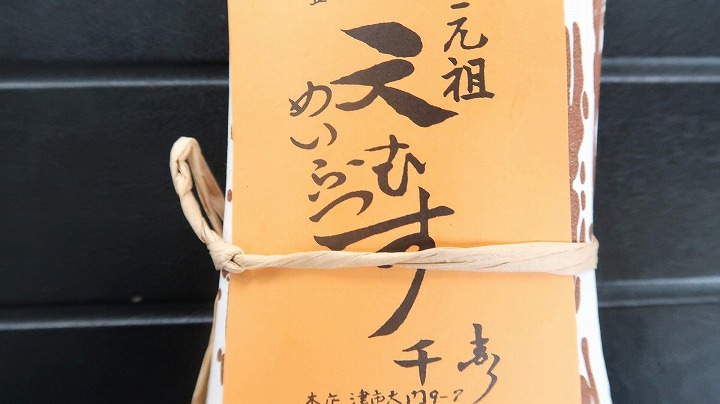 元祖
天むす
めいぶつ
千寿
本店 津市大門9-7